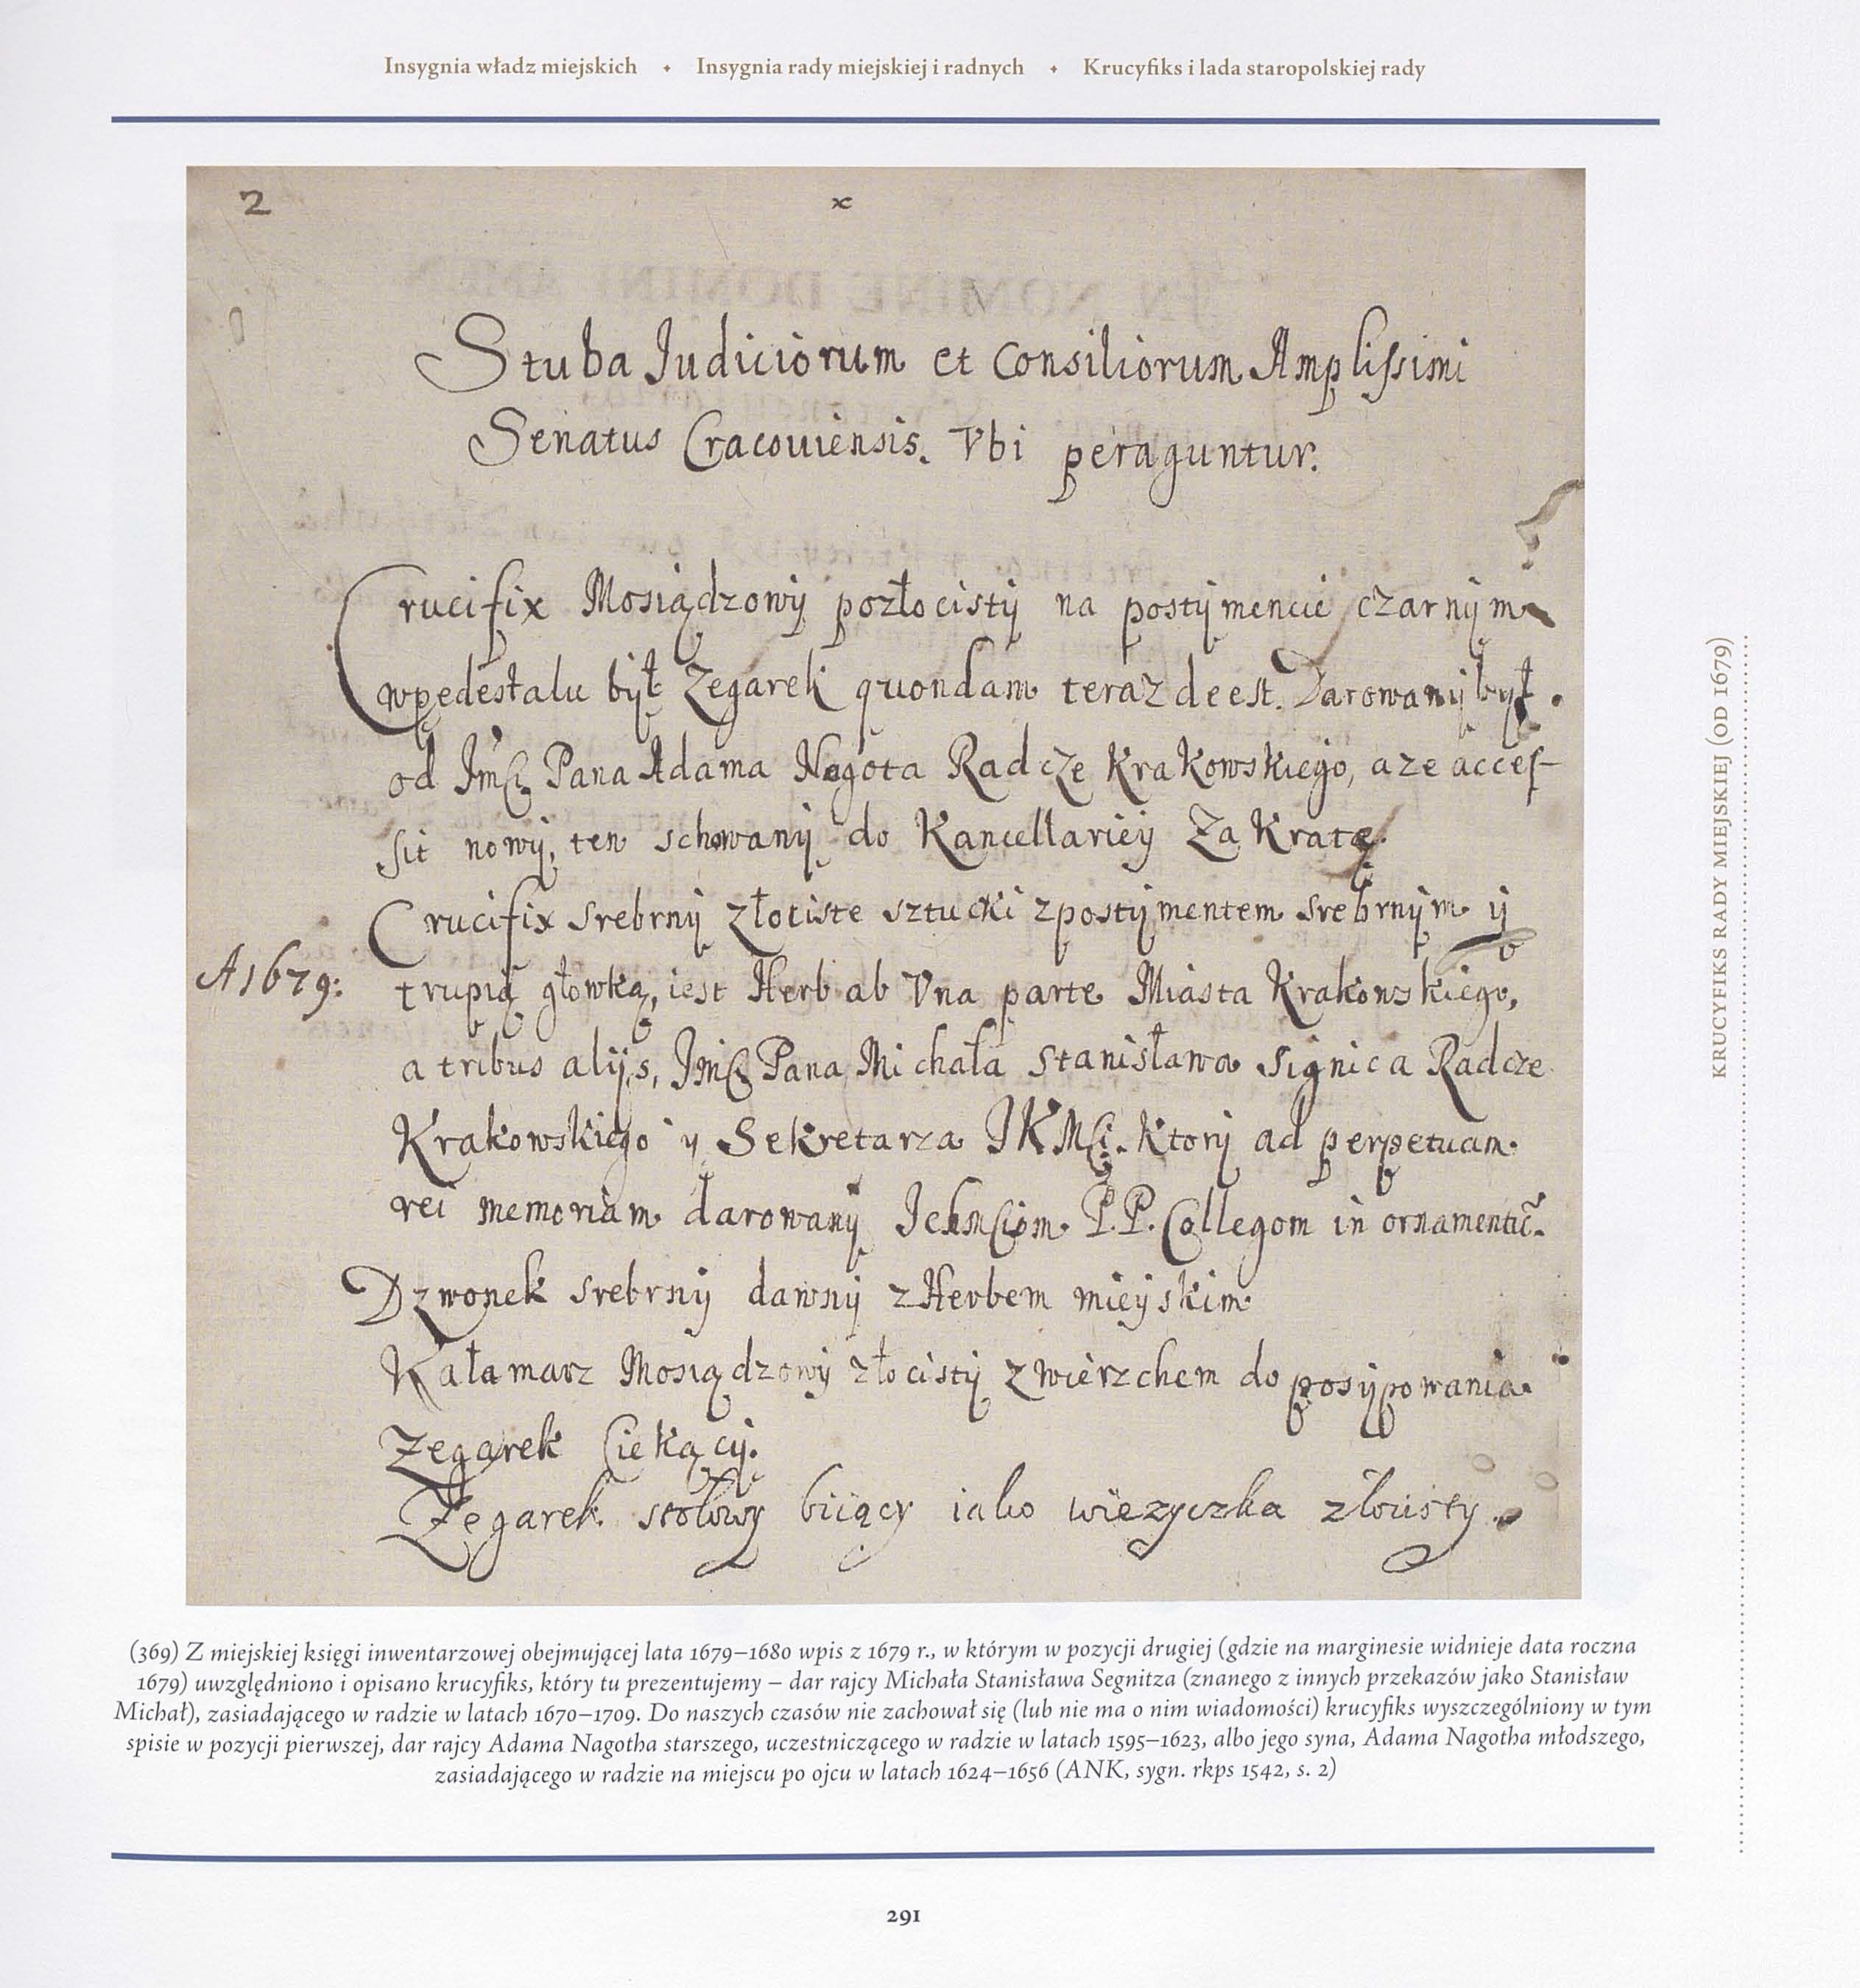 Insygnia władz miejskich ✦ Insygnia rady miejskiej i radnych ✦ Krucyfiks i lada staropolskiej rady
2
x
Stuba Judiciorum et Consiliorum Amplissimi
Senatus Cracouiensis. Vbi peraguntur.
Crucifix Mosiądzowy pozłocisty na postymencie czarnym
wpedestalu był Zegarek quondam teraz deest. Darowany był
od Jmci Pana Adama Nagota Radcze Krakowskiego, a ze acces-
sit nowy, ten schowany do Kancellariey Za Kratę.
Crucifix srebrny złociste sztucki zpostymentem srebrnym y
A 1679:
trupią głowką, iest Herb ab Vna parte Miasta Krakowskiego,
a tribus alijs, Jmci Pana Michała Stanisława Signica Radcze
Krakowskiego y Sekretarza JKMci. Ktory ad perpetuam
rei memoriam darowany Ichmciom P.P. Collegom in
Dzwonek srebrny dawny zHerbem mieyskim
Kałamarz Mosiądzowy złocisty zwierzchem do posypowania
Zegarek Ciekący.
Zegarek stołowy biiący iako wiezyczka złocisty
(369) Z miejskiej księgi inwentarzowej obejmującej lata 1679–1680 wpis z 1679 r., w którym w pozycji drugiej (gdzie na marginesie widnieje data roczna
1679) uwzględniono i opisano krucyfiks, który tu prezentujemy – dar rajcy Michała Stanisława Segnitza (znanego z innych przekazów jako Stanisław
Michał), zasiadającego w radzie w latach 1670–1709. Do naszych czasów nie zachował się (lub nie ma o nim wiadomości) krucyfiks wyszczególniony w tym
spisie w pozycji pierwszej, dar rajcy Adama Nagotha starszego, uczestniczącego w radzie w latach 1595–1623, albo jego syna, Adama Nagotha młodszego,
zasiadającego w radzie na miejscu po ojcu w latach 1624–1656 (ANK, sygn. rkps 1542, s. 2)
291
KRUCYFIKS RADY MIEJSKIEJ (OD 1679)